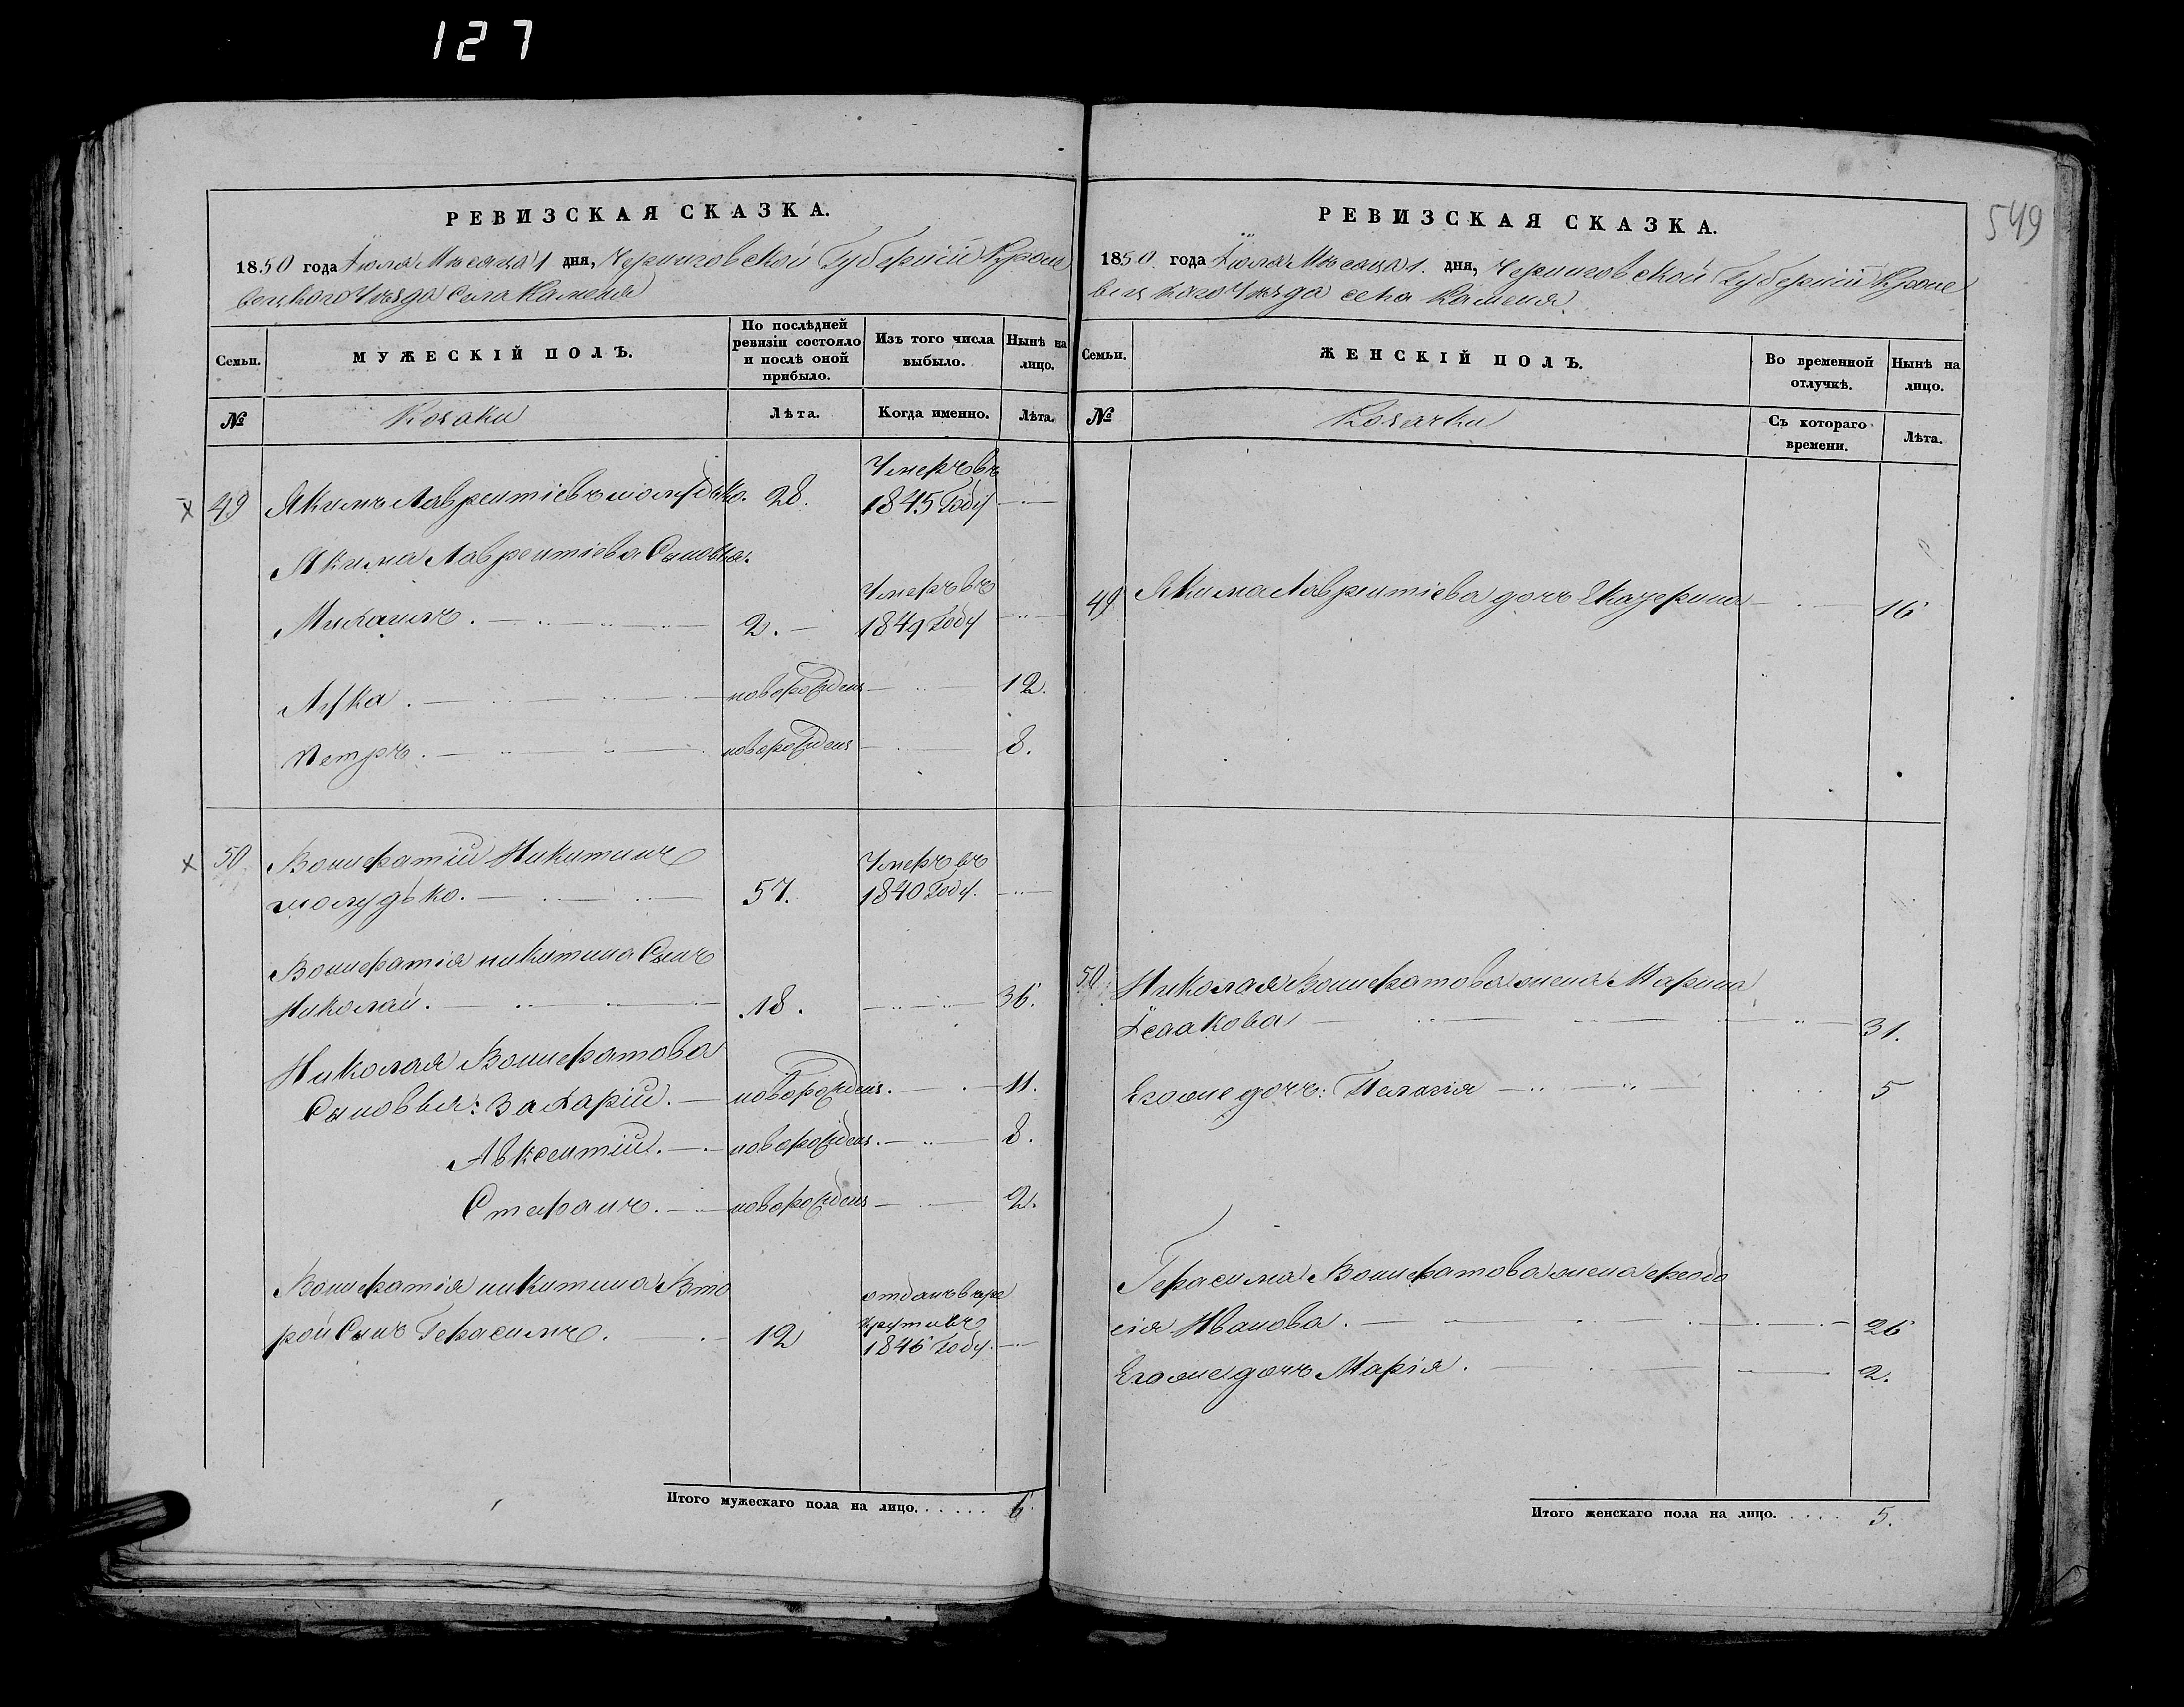 127
РЕВИЗСКАЯ СКАЗКА.
1850 года Іюля Мѣсяца 1 дня, Черниговской Губерніи Кроле
вецкого Уѣзда села Каменя
Семьи.
МУЖЕСКІЙ ПОЛЪ.
По послѣдней ревизіи состояло и послѣ оной прибыло.
Изъ того числа выбыло.
Нынѣ на лицо.
№
Козаки
Лѣта.
Когда именно.
Лѣта.
49 Якимъ Лаврентіевъ 28. Умеръ въ 1845 Году
Якима Лаврентіева Сыновья:
Михаилъ. 2. Умеръ въ 1849 Году
Лука. новорожден 12.
Петръ. новорожден 8.
50 Вонифатій Никитинъ
шолудько. 57. Умеръ въ 1840 Году.
Вонифатія никитина Сынъ
Николай. 18. 36.
Николая Вонифатова
Сыновья: Захарій. новорожден. 11.
Авксентій. новорожден. 8.
Стефанъ. новорожден 2.
Вонифатія никитина Вто
рой Сынъ Герасимъ. 12 отданъ в ре
круты въ
1846 Году.
Итого мужескаго пола на лицо. 6.
549
РЕВИЗСКАЯ СКАЗКА.
1850. года Іюля Мѣсяца 1. дня, Черниговской Губерніи Кроле
вецкого Уѣзда села Каменя.
Семьи.
ЖЕНСКІЙ ПОЛЪ.
Во временной отлучкѣ.
Нынѣ на лицо.
№
Козачки
Съ котораго времени.
Лѣта.
49 Якима Лаврентіева дочь Екатерина 16
50 Николая Вонифатова жена Марина
Ісаакова 31.
Его же дочь: Пелагія 5
Герасима Вонифатова жена феодо
сія Иванова. 26
Его же дочь Марія. 2.
Итого женскаго пола на лицо. 5.